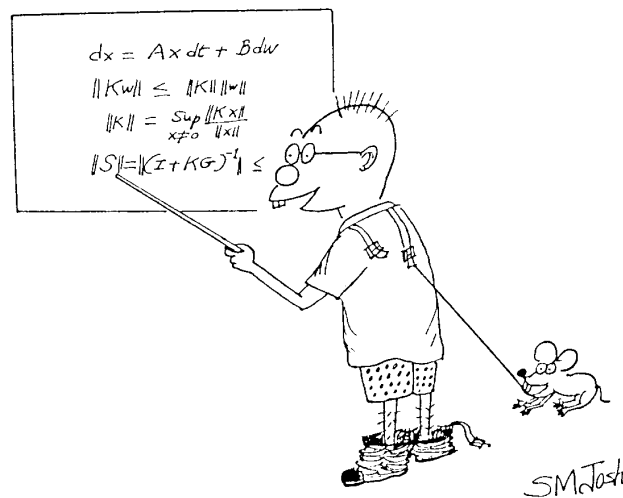 dx = Ax dt + B dw
||Kw|| ≤ ||K|| ||w||
||K|| = Sup x≠0 ||Kx|| / ||x||
||S|| = ||(I + KG)⁻¹|| ≤
SMJosh